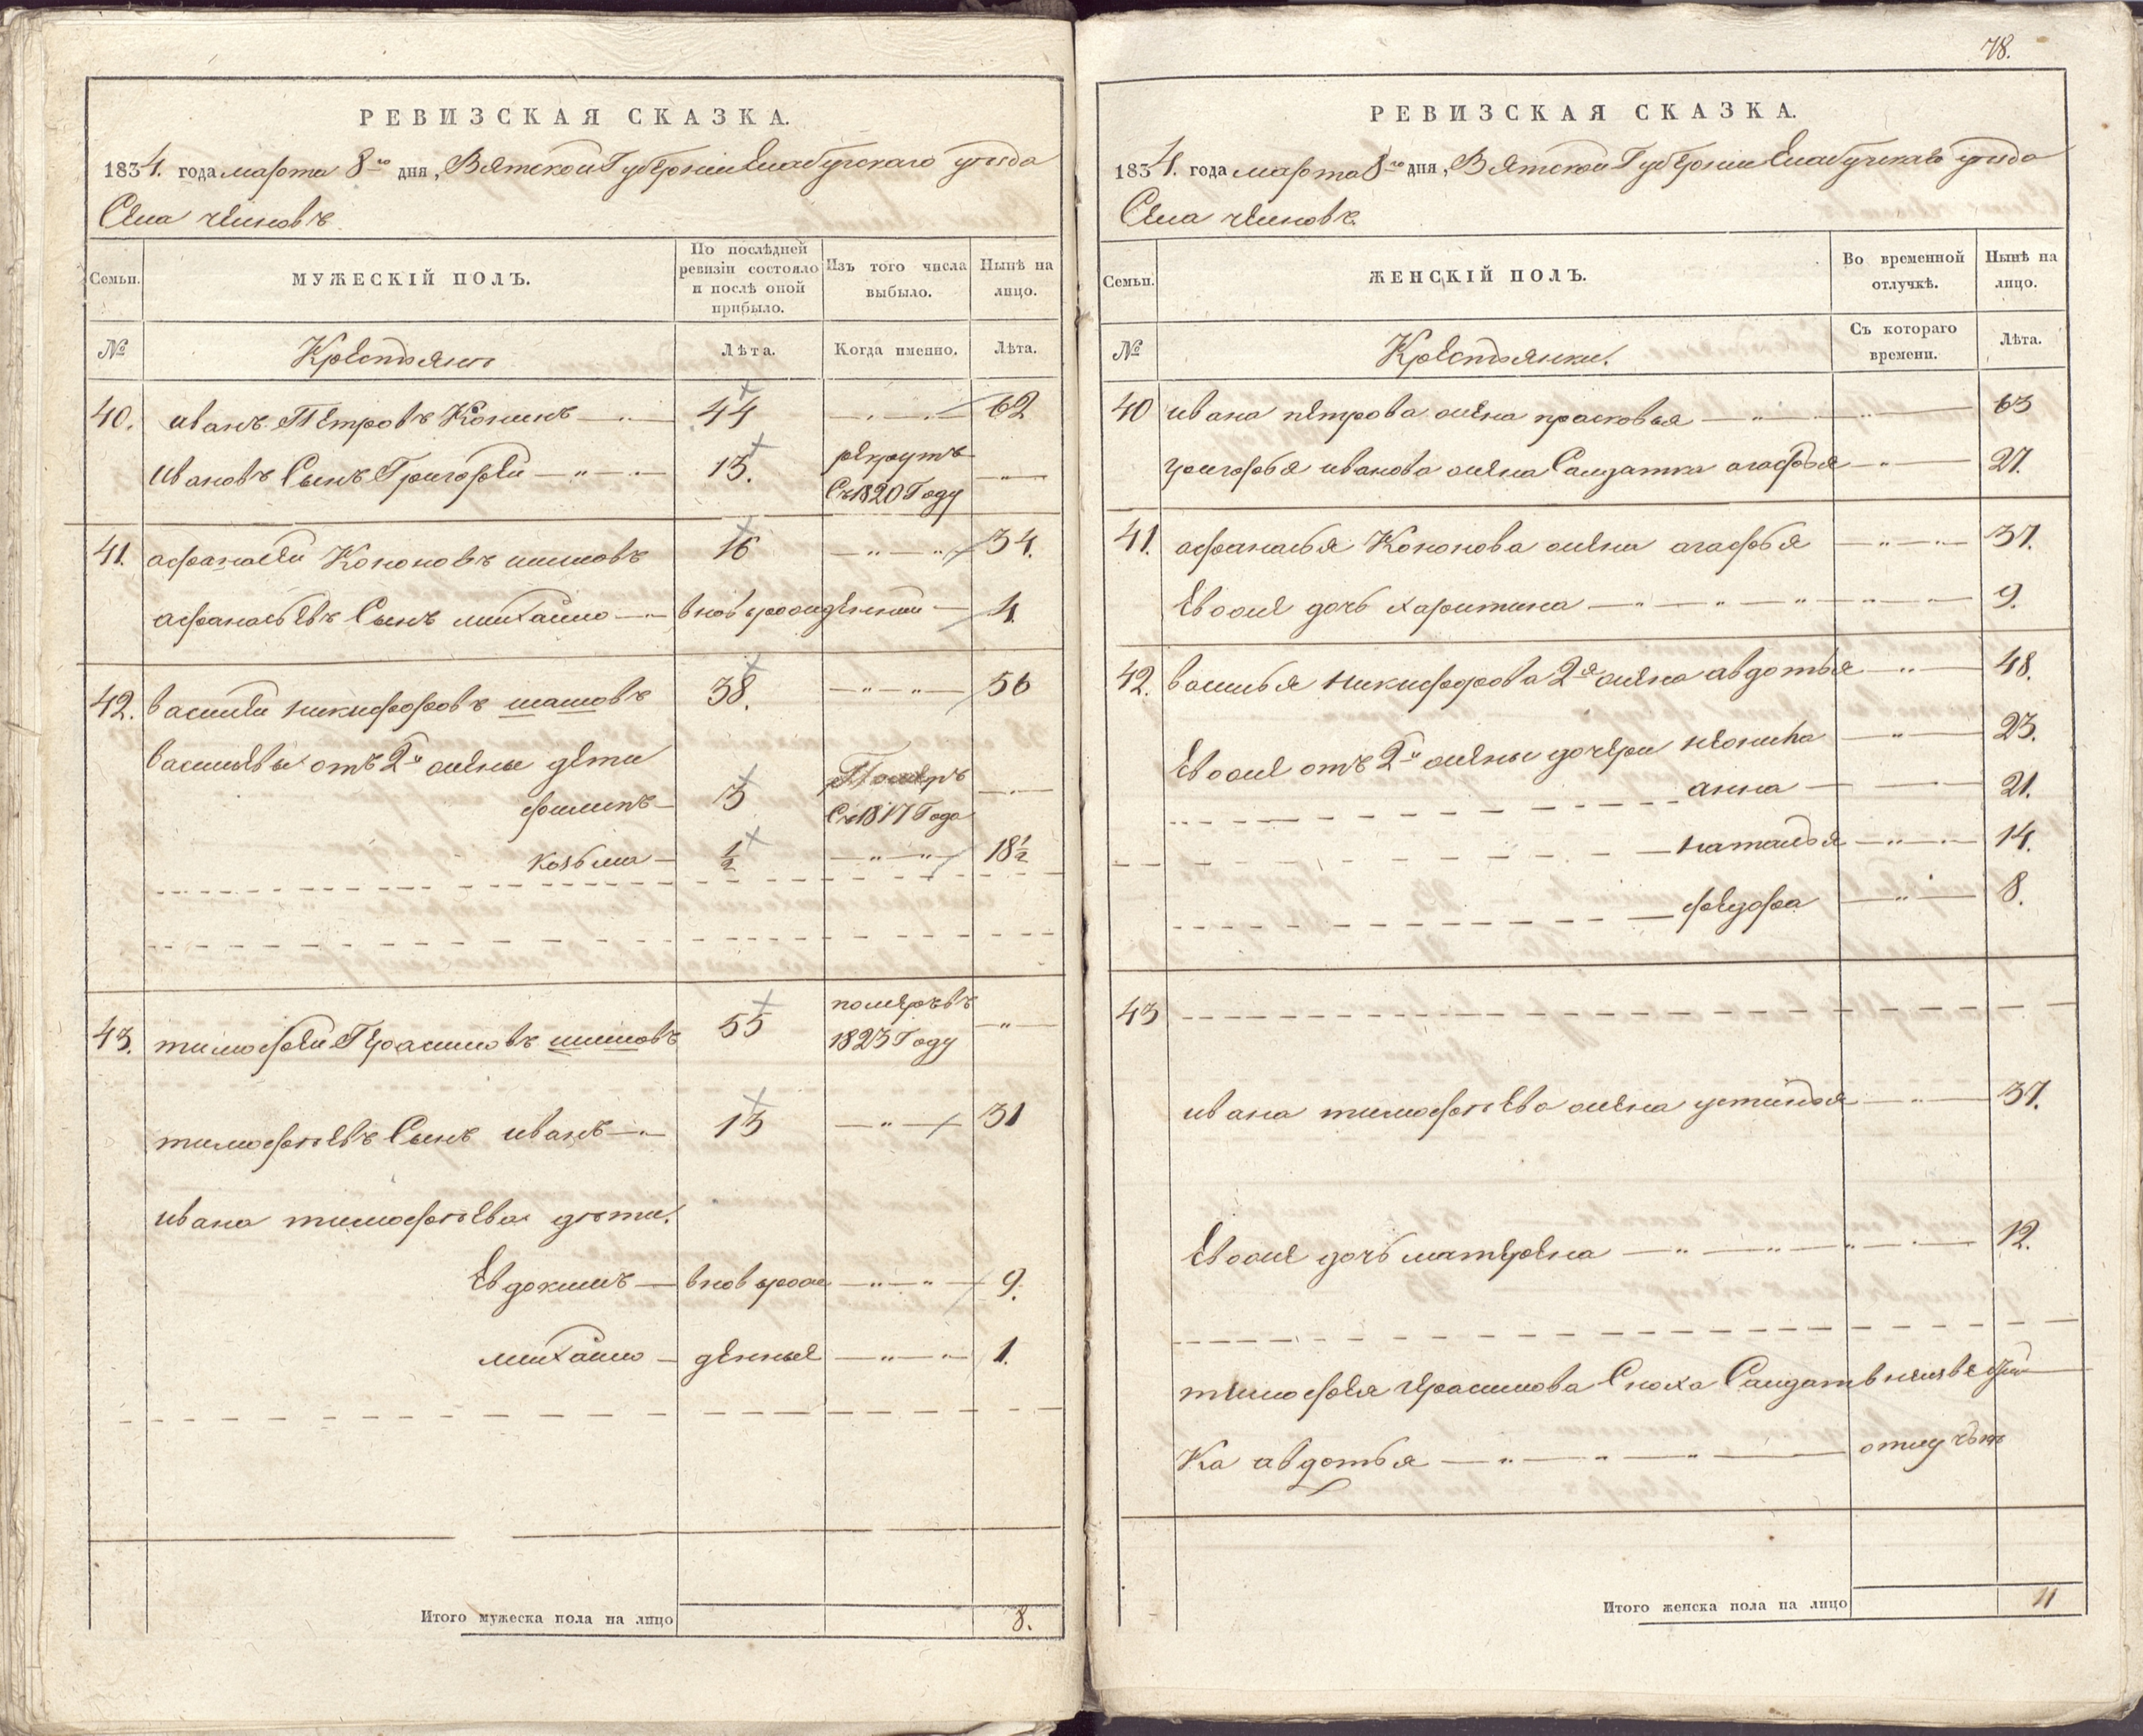 РЕВИЗСКАЯ СКАЗКА.
1834. года марта 8го дня, Вятской Губернии Елабугскаго уезда
Села челновъ
Семьи.
МУЖЕСКІЙ ПОЛЪ.
По послѣдней ревизіи состояло и послѣ оной прибыло.
Изъ того числа выбыло.
Нынѣ на лицо.
№
Крестьянъ
Лѣта.
Когда именно.
Лѣта.
40. иванъ Петровъ Конинъ — 44 — 62
ивановъ Сынъ Григорей — 13. рекрутъ
Съ 1820 Году
41. афанасей Кононовъ шишовъ 16 — 34.
афанасьевъ Сынъ михайло — вновьрожденный — 4.
42. василей никифоровъ шашовъ 38. — 56
васильевы от 2й жены дети
филипъ — 3 Померъ
Съ 1817 Года
козьма — 1/2 — 18 1/2
43. тимофей Герасимовъ шишовъ 55 померъ въ
1823 Году
тимофѣевъ Сынъ иванъ — 13 — 31
ивана тимофѣева дѣти.
Евдокимъ — вновьрож — 9.
михайло — денные — 1.
Итого мужеска пола на лицо 8.
78.
РЕВИЗСКАЯ СКАЗКА.
1834. года марта 8го дня, Вятской Губернии Елабугскаго уезда
Села челновъ.
Семьи.
ЖЕНСКІЙ ПОЛЪ.
Во временной отлучкѣ.
Нынѣ на лицо.
№
Крестьянки.
Съ котораго времени.
Лѣта.
40 ивана петрова жена прасковья — 63
григорья иванова жена Салдатка агафья — 27.
41. афанасья Кононова жена агафья — 37.
Евоже дочь харитина — 9.
42. василья никифорова 2я жена авдотья — 48.
Евоже отъ 2й жены дочери неонила — 23.
анна — 21.
наталья — 14.
федора — 8.
43
ивана тимофѣева жена устинья — 37.
Евоже дочь матрена — 12.
тимофея герасимова Сноха Салдат в неизвестной
Ка авдотья — отлучкѣ
Итого женска пола на лицо 11